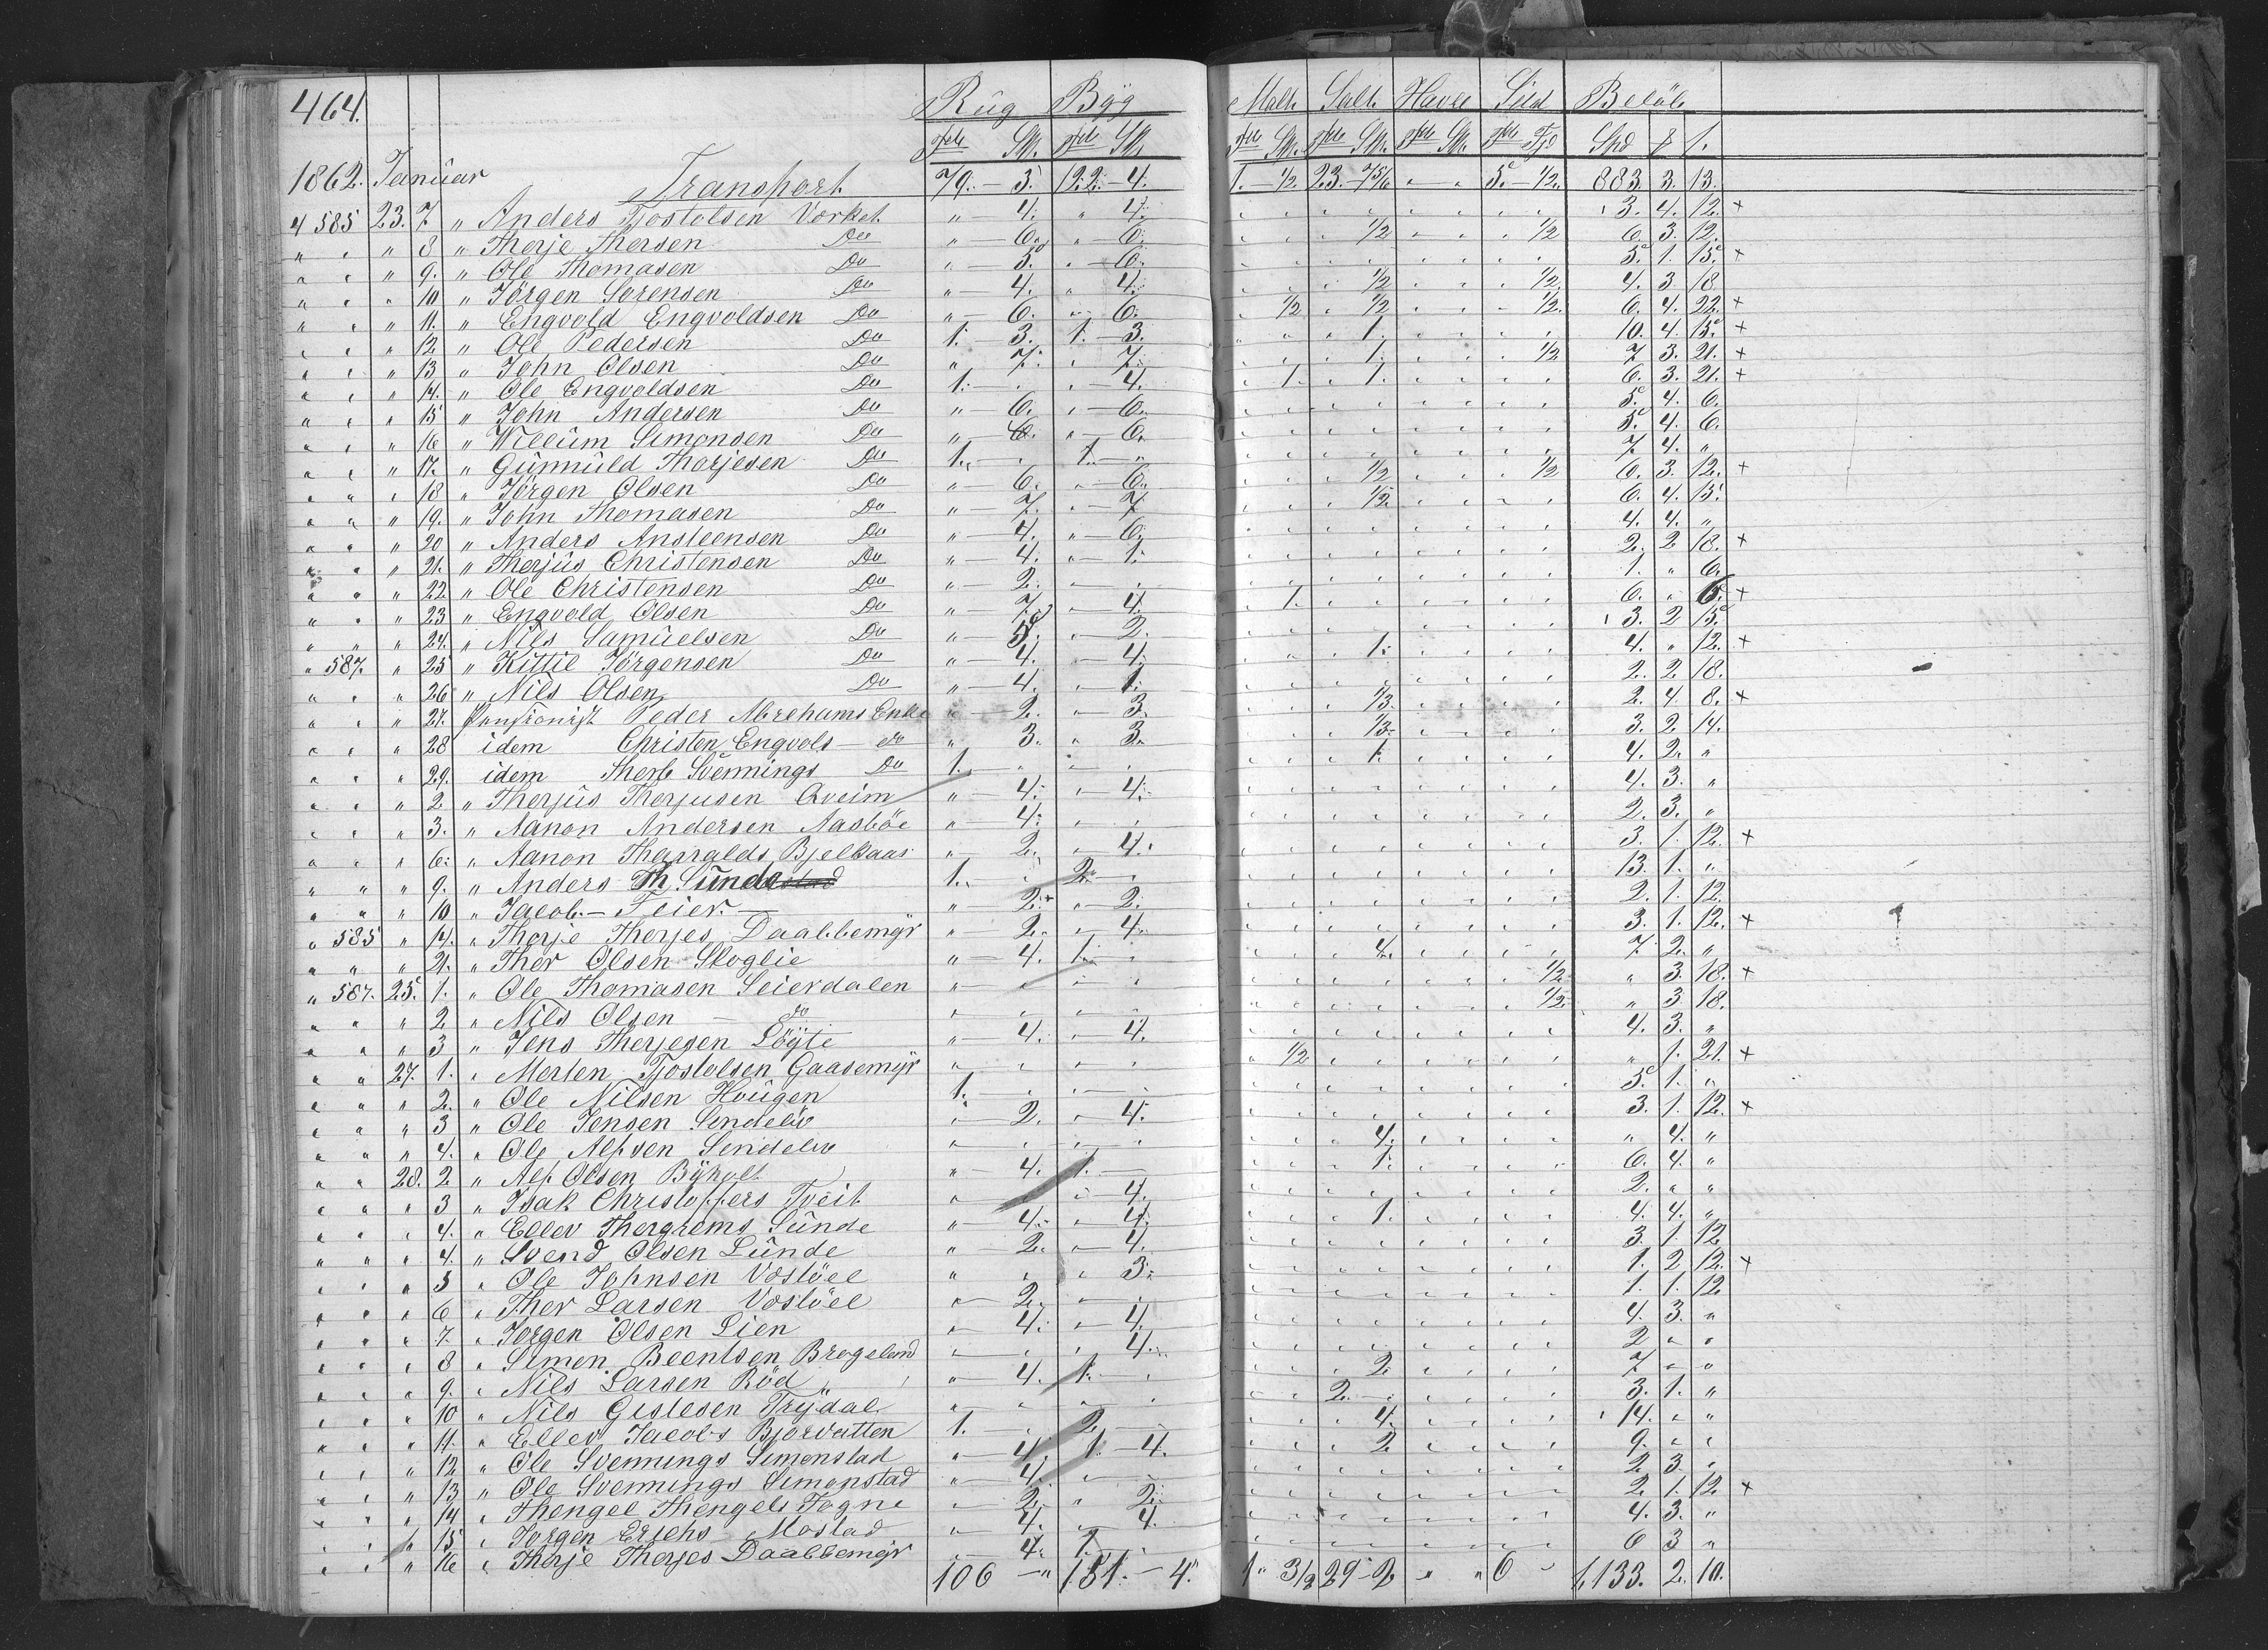 464. Rug Byg Malt Salt Havre Sild Beløb
Tde Sk. Tde Sk. Tde Sk. Tde Sk. Tde Sk. Tde Fjd Spd ß
1862. Januar Transport 79. — 3. 122. — 4. 1. — 1/2 23. — 7 5/6 " " 5. — 1/2. 883. 3. 13.
4 585 23. 7 " Anders Tjostolsen Værket " — 4. " 4. 3. 4. 12. +
" " " 8 " Therje Thorsen Do " — 6. " — 6. 1/2 1/2 6. 3. 12.
" " " 9. " Ole Thomasen Do " — 5. " — 6. 5. 1. 15. +
" " " 10 " Jörgen Sörensen Do " — 4. " 4. 1/2 1/2. 4. 3. 18.
" " " 11. " Engvold Engvoldsen Do " — 6. " — 6. 1/2 1/2 1/2. 6. 4. 22. +
" " " 12 " Ole Pedersen Do 1. — 3. 1. — 3. 1. 10. 4. 15. +
" " " 13 " John Olsen Do " 7. " 7. 1. 1/2 7. 3. 21. +
" " " 14. " Ole Engvoldsen Do 1. " " — 4. 1. 1. 6. 3. 21. +
" " " 15 " John Andersen Do " 6. " — 6. 5. 4. 6.
" " " 16 " Willum Simonsen Do " — 6. " — 6. 5. 4. 6.
" " " 17. " Gunnuld Thorjesen Do 1. " 1. " 7. 4. "
" " " 18 " Jörgen Olsen Do " — 6. " — 6. 1/2 1/2 6. 3. 12. +
" " " 19. " John Thomasen Do " — 7. " — 7 1/2 6. 4. 15.
" " " 20 " Anders Ansteensen Do " — 4. " — 6. 4. 4. "
" " " 21. " Therjus Christensen Do " 4. " — 1. 2. 2 18. +
" " " 22. " Ole Christensen Do " — 2. " " 1. " 6.
" " " 23 " Engvold Olsen Do " — 7. " — 4. 1. 6. " 6. +
" " " 24. " Nils Samuelsen Do " 5. " — 2. 3. 2 15.
" 587. " 25 " Kittil Jörgensen Do " — 4. " — 4. 1. 4. " 12. +
" " " 26 " Nils Olsen Do " — 4. " 1. 2. 2. 18.
" " " 27. Pensionist Peder Abrehams Enke " — 2. " 3. 1/3. 2. 4. 8. +
" " " 28 idem Christen Engvols — do " 3. " 3. 1/3. 3. 2. 14.
" " " 29. idem Therb Svennings Do 1. " " " 1. 4. 2. "
" " " 2 " Therjus Therjusen Qveim " — 4. " — 4. 4. 3. "
" " " 3. " Aanon Andersen Aasböe " 4. " " 2. 3. "
" " " 6. " Aanon Tharralds Bjelkaas " — 2. " — 4. 3. 1. 12. +
" " " 9. " Anders Th Sunde 1. " 2. " 13. 1. "
" " " 10 " Jacob — Feier. — " — 2. " — 2. 2. 1. 12.
" 585 " 14. " Therje Therjes Daalbemyr " 2. " 4. 3. 1. 12. +
" " " 21. " Ther Olsen Skoglie " — 4. 1. " 4. 7. 2. "
" 587. 25. 1. " Ole Thomasen Seierdalen " " " " 1/2 " 3. 18. +
" " " 2 " Nils Olsen — do " " " " 1/2. " 3. 18.
" " " 3 " Jens Therjesen Lögte " — 4. " — 4. 4. 3. "
" " 27. 1. " Morten Tjostolsen Gaasemyr " " " " 1/2 " 1. 21. +
" " " 2. " Ole Nilsen Hougen 1. " " " 5. 1. "
" " " 3 " Ole Jensen Sendelev " 2. " — 4. 3. 1. 12. +
" " " 4. " Ole Alfsen Sendelev " " " " 4. " 4. "
" " 28. 2 " Alf Olsen Byholt " — 4. 1. — 1. 6. 4. "
" " " 3 " Isak Christoffers Tveit " " " 4. 2. " "
" " " 4. " Ellev Thorgrems Sunde " 4. " — 4. 1. 4. 4. "
" " " 4. " Svend Olsen Lunde " 2. " — 4. 3. 1. 12
" " " 5 " Ole Johnsen Vaslöel " " " 3. 1. 2 12. +
" " " 6 " Ther Larsen Vaslöel " — 2. " " 1. 1. 12
" " " 7. " Jorgen Olsen Lien " — 4. " — 4. 4. 3. "
" " " 8 " Simon Beentsen Brogeland " " " 4. 2 " "
" " " 9. " Nils Larsen Röd " — 4. 1. " 2. 7 " "
" " " 10 " Nils Gislesen Frydal " " " " 2. — 3. 1. "
" " " 11. " Ellev Jacobs Bjorvatten 1. " 2. " 4. 14. " "
" " " 12 " Ole Svennings Simonstad " 4. 1. — 4. 2 9. " "
" " " 13 " Ole Svennings Simonstad " 4. " " 2. 3. "
" " " 14 " Thengel Thengels Fogne " 2. " 2. 2. 1. 12 +
" " " 15 " Jorgen Erichs Mostad " 4. " 4. 4. 3. "
" " " 16 " Therje Therjes Daalbemyr " — 4. 1. " 6 3 "
106 — " 131. — 4. 1 " 3/2 29 — 2 " " 6 " 1,133. 2. 10.